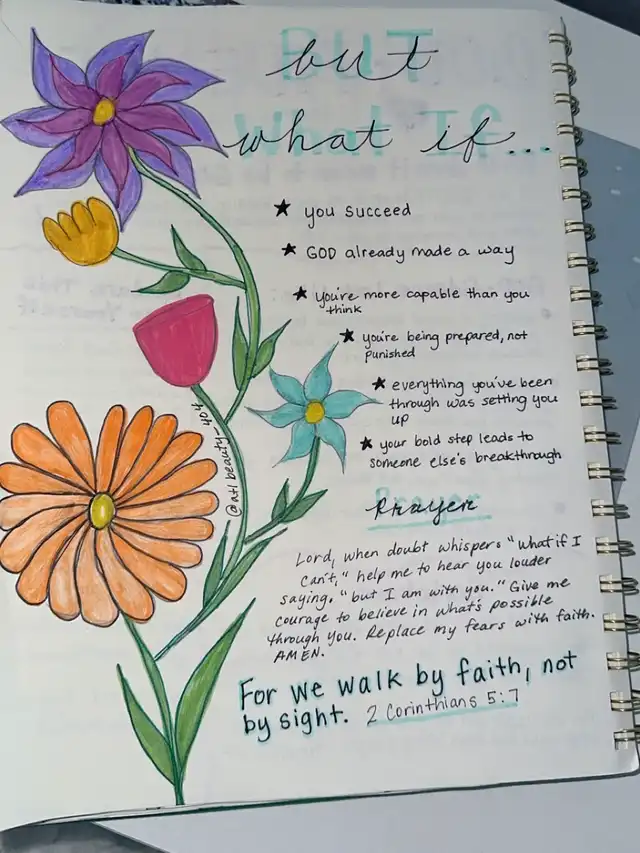 but
what if...
★ you succeed
★ GOD already made a way
★ you're more capable than you
think
★ you're being prepared, not
punished
★ everything you've been
through was setting you
up
★ your bold step leads to
someone else's breakthrough
@atl beauty_404
Prayer
Lord, when doubt whispers "what if I
can't," help me to hear you louder
saying, "but I am with you." Give me
courage to believe in what's possible
through you. Replace my fears with faith.
AMEN.
For we walk by faith, not
by sight. 2 Corinthians 5:7